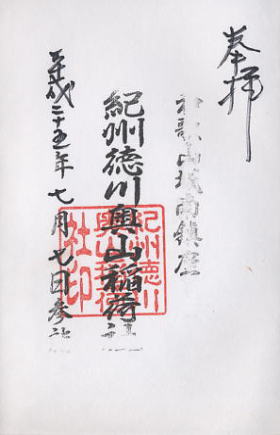 奉拝
和歌山城南鎮座
紀州徳川奥山稲荷社
平成二十五年七月七日参詣
紀州徳川
奥山稲荷
社印